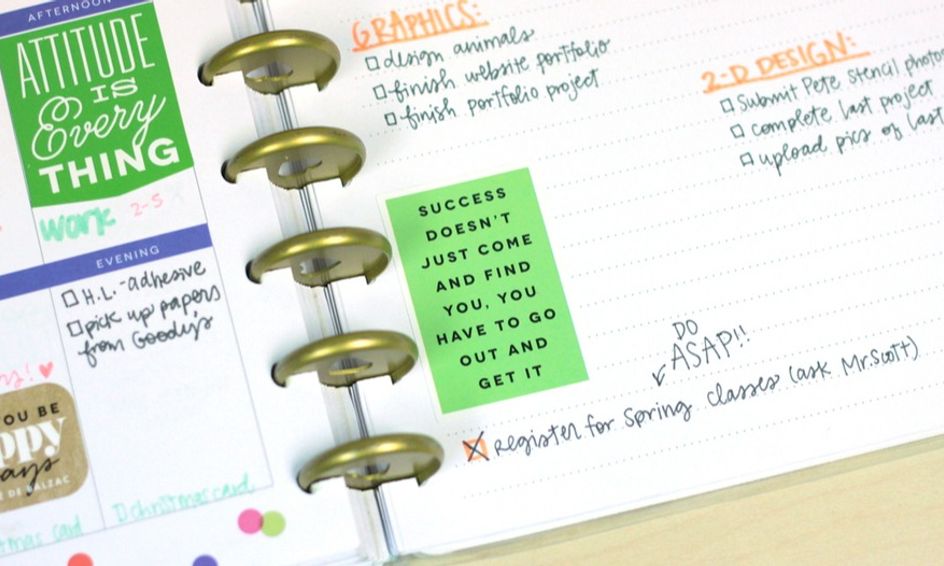 AFTERNOON
ATTITUDE
IS
Every
THING
Work 2-5
EVENING
H.L.-adhesive
pick up papers
from Goody's
YOU BE
DE BALZAC
mas card
christmas card
GRAPHICS:
design animals
finish website portfolio
finish portfolio project
2-D DESIGN:
Submit Pete Stencil photo
complete last project
upload pics of last
SUCCESS
DOESN'T
JUST COME
AND FIND
YOU, YOU
HAVE TO GO
OUT AND
GET IT
DO
ASAP!!
register for spring classes (ask Mr. Scott)